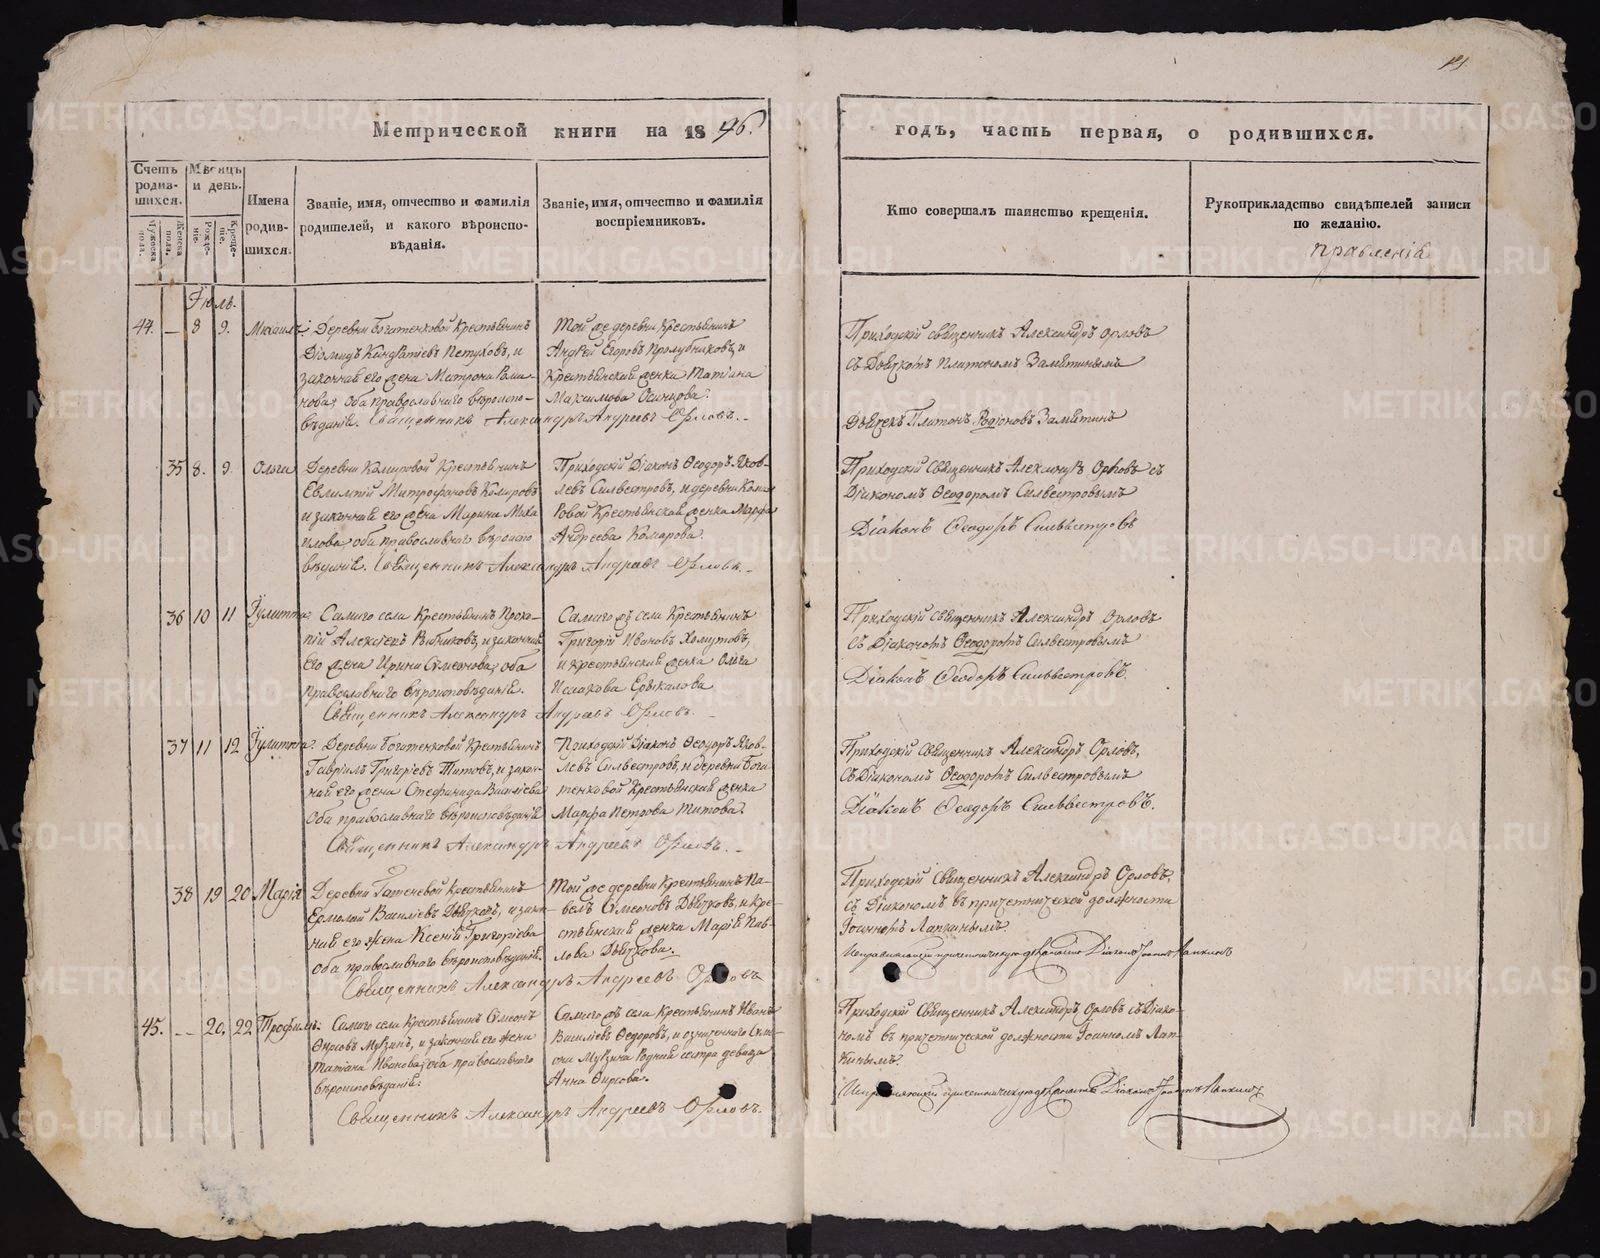 Метрической книги на 1846.
годъ, часть первая, о родившихся.
Счетъ родив-шихся.
Мѣсяцъ и день.
Имена родив-шихся.
Званіе, имя, отчество и фамилія родителей, и какого вѣроиспо-вѣданія.
Званіе, имя, отчество и фамилія воспріемниковъ.
Кто совершалъ таинство крещенія.
Рукоприкладство свидѣтелей записи по желанію.
Мужеска пола.
Женска пола.
Рожде-ніе.
Креще-ніе.
Іюль.
44. — 8 9. Михаилъ.
Деревни Богатенковой Крестьянинъ
Діомидъ Кондратіевъ Петуховъ, и
законная его жена Матрона
оба православнаго вѣроиспо-
вѣданія. Священникъ Александръ Андреевъ Орловъ.
Той же деревни Крестьянинъ
Андрей Егоровъ Пролубниковъ, и
Крестьянская женка Татіана
Максимова Осинцова.
Приходскій священникъ Александръ Орловъ
съ Платономъ Замятинымъ
Платонъ Родіоновъ Замятинъ
35 8. 9. Ольга
Деревни Комаровой Крестьянинъ
Евлампій Митрофановъ Комаровъ
и законная его жена Марина Миха
илова, оба православнаго вѣроиспо
вѣданія. Священникъ Александръ Андреевъ Орловъ.
Приходскій Діаконъ Ѳеодоръ Яков-
левъ Сильвестровъ, и деревни Кома
ровой Крестьянская женка Марфа
Андреева Комарова.
Приходскій Священникъ Александръ Орловъ съ
Діакономъ Ѳеодоромъ Сильвестровымъ
Діаконъ Ѳеодоръ Сильвестровъ
36 10 11 Іулитта
Самаго села Крестьянинъ Проко-
пій Алексѣевъ и законная
его жена Ирина Симеонова, оба
православнаго вѣроисповѣданія.
Священникъ Александръ Андреевъ Орловъ.
Самаго жъ села Крестьянинъ
Григорій Ивановъ Хомутовъ,
и крестьянская женка Ольга
Исаакова
Приходскій Священникъ Александръ Орловъ
съ Діакономъ Ѳеодоромъ Сильвестровымъ
Діаконъ Ѳеодоръ Сильвестровъ.
37 11 12 Іулитта.
Деревни Богатенковой Крестьянинъ
Гавріилъ Григоріевъ Титовъ, и закон-
ная его жена Стефанида Василіева
оба православнаго вѣроисповѣданія
Священникъ Александръ Андреевъ Орловъ.
Приходскій Діаконъ Ѳеодоръ Яков-
левъ Сильвестровъ, и деревни Бога
тенковой Крестьянская женка
Марфа Петрова Титова.
Приходскій Священникъ Александръ Орловъ,
съ Діакономъ Ѳеодоромъ Сильвестровымъ
Діаконъ Ѳеодоръ Сильвестровъ.
38 19 20 Марія
Деревни Крестьянинъ
Ермолай Василіевъ и закон-
ная его жена Ксенія Григоріева
оба православнаго вѣроисповѣданія.
Священникъ Александръ Андреевъ Орловъ
Той же деревни Крестьянинъ Па-
велъ Симеоновъ и кре-
стьянская женка Марія Пав-
лова
Приходской Священникъ Александръ Орловъ,
съ Діакономъ въ причетнической должности
Іоанномъ Лапкинымъ
Исправляющій причетническую должность Діаконъ Іоаннъ Лапкинъ
45. — 20. 22 Трофимъ.
Самаго села Крестьянинъ Симеонъ
Ѳирсовъ Мурзинъ, и законная его жена
Татіана Иванова, оба православнаго
вѣроисповѣданія.
Священникъ Александръ Андреевъ Орловъ.
Самаго жъ села Крестьянинъ Иванъ
Василіевъ Ѳедоровъ, и означеннаго Симе-
она Мурзина родная сестра девица
Анна Ѳирсова.
Приходскій Священникъ Александръ Орловъ съ Діако-
номъ въ причетнической должности Іоанномъ Лап-
кинымъ.
Исправляющій причетническую должность Діаконъ Іоаннъ Лапкинъ
METRIKI.GASO-URAL.RU